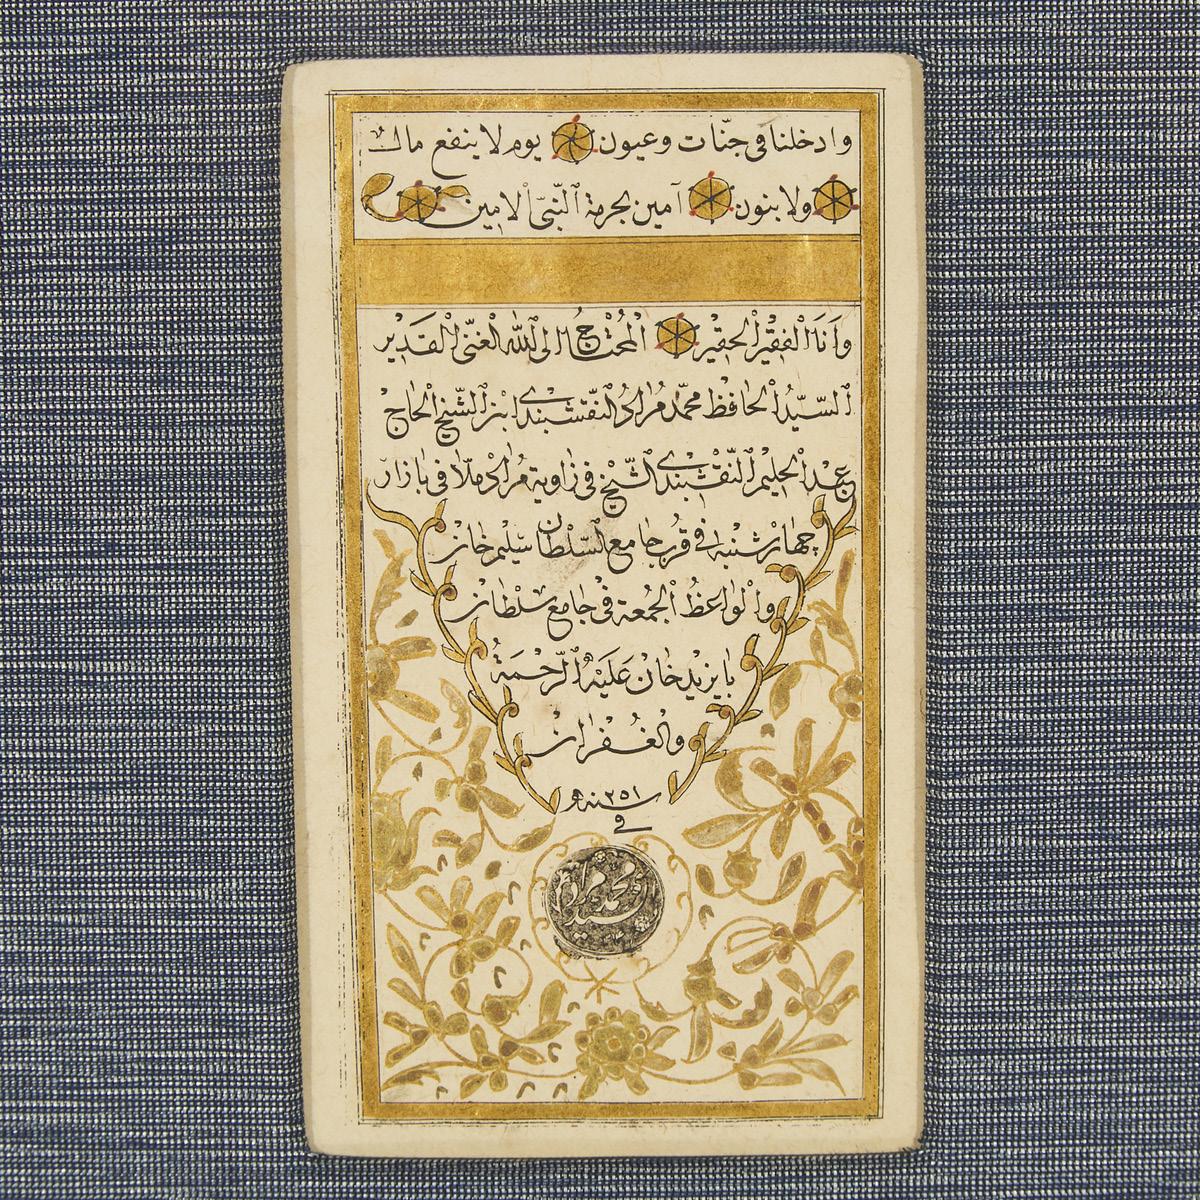 وادخلنا فى جنّات وعيون يوم لا ينفع مال
ولا بنون آمين بحرمة النّبىّ الامين
وَاَنَا الفقير الحقير المُحْتاج الى اللّٰه الغنىّ القَدير
السّيّد الحَافظ محمّد مُرَاد النّقشبندى ابن الشّيخ الحَاج
عبد الحليم النّقشبندى الشّيخ فى زَاوية مُرَاد ملّا فى بَازار
چهارشنبه فى قرب جَامع السّلطان سَليم خَان
والوَاعظ الجمعة فى جَامع سُلطان
بَايزيد خَان عَليْهِ الرّحْمَةُ
والغُفْرَان
فى سنه ١٢٥١
محمد مراد